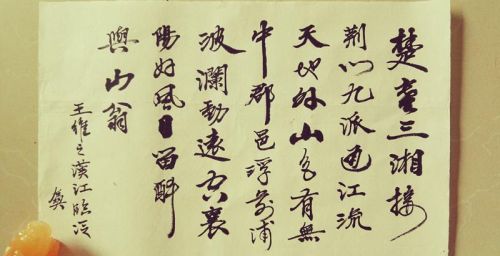 楚塞三湘接
荆门九派通江流
天地外山色有無
中郡邑浮前浦
波瀾動遠空襄
陽好風日留醉
與山翁
王維之漢江臨泛